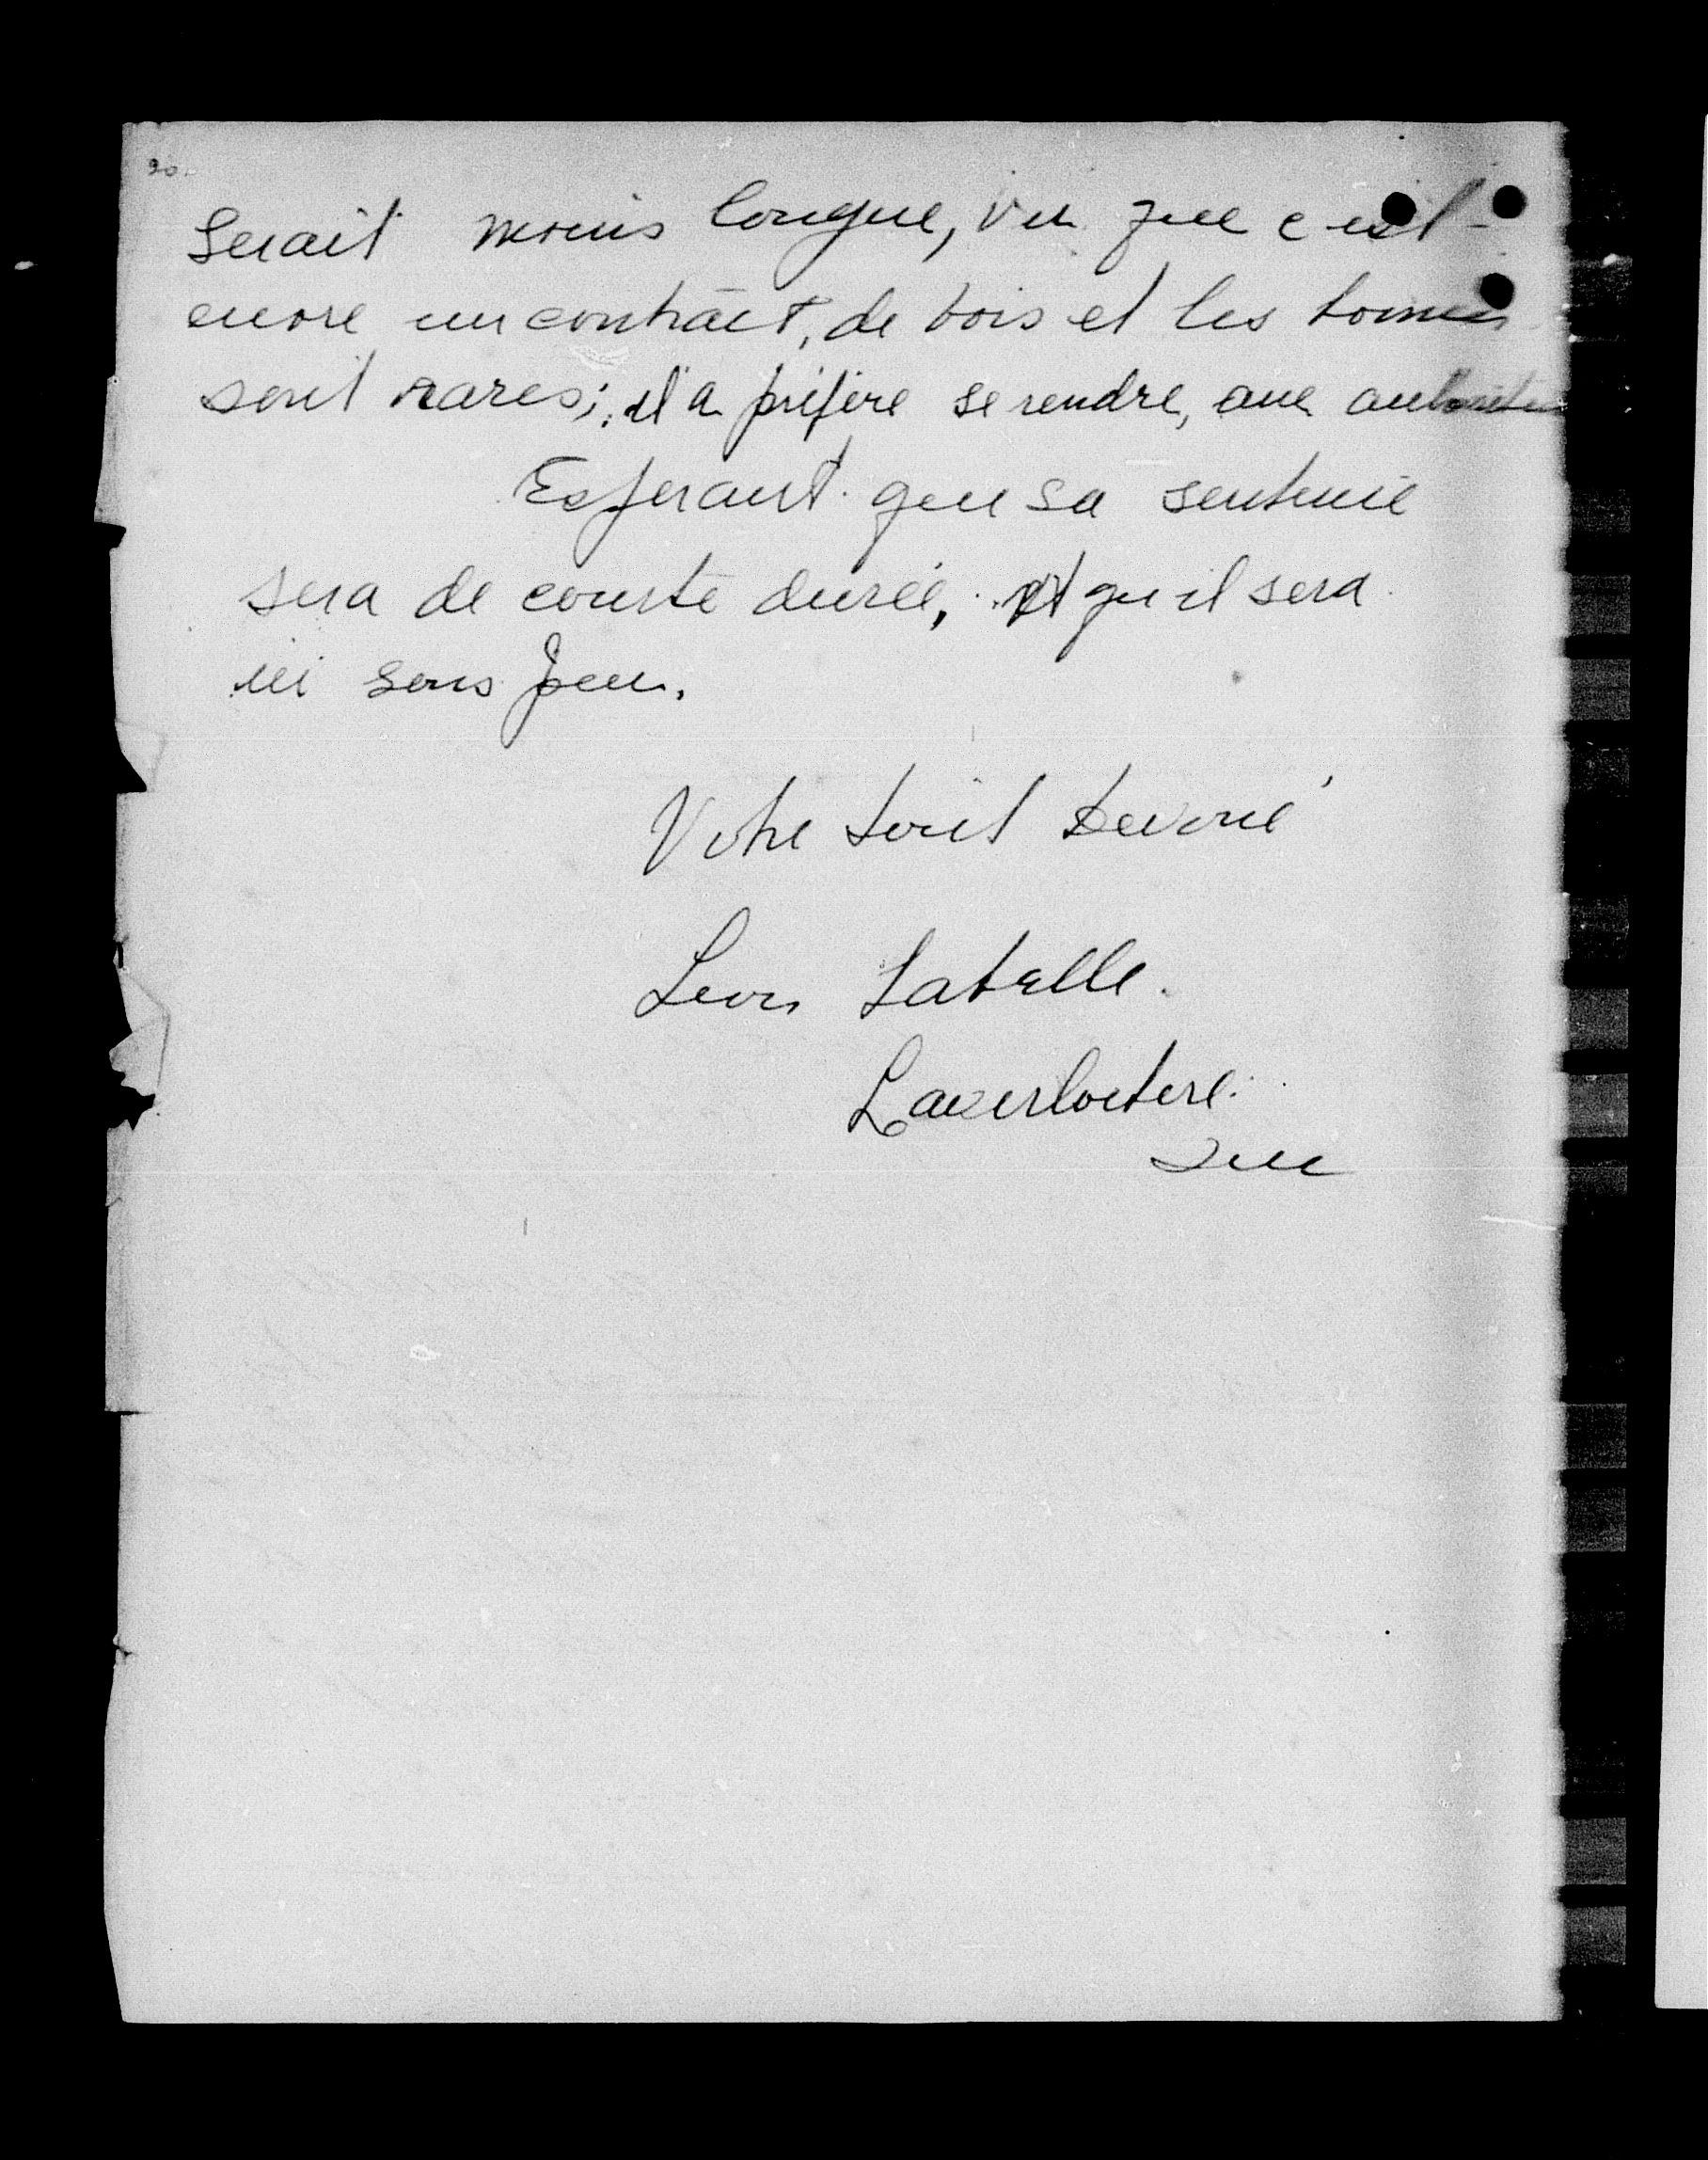 serait moins longue, vu que c est
encore un contract, de bois et les bommes
sont rares; il a préfére se rendre, aux autorités
Esperant que sa sentence
sera de courte durée, et qu il sera
ici sous peu.
Votre tout devoué
Leon Labelle.
Laverlochere.
Que